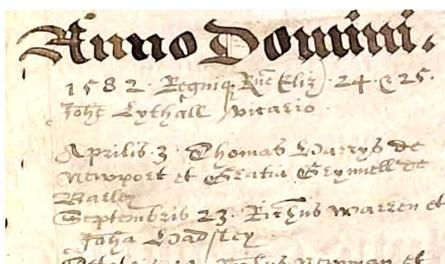 Anno Domini.
1582. Regniq, Rne Eliz. 24. & 25.
Johe Lythall vicario.
Aprilis. 3. Thomas Parrys de
Newport et Gratia Grynnell de
Barley
Septembris 23. Richus Warren et
Joha Wadsley
Newman et